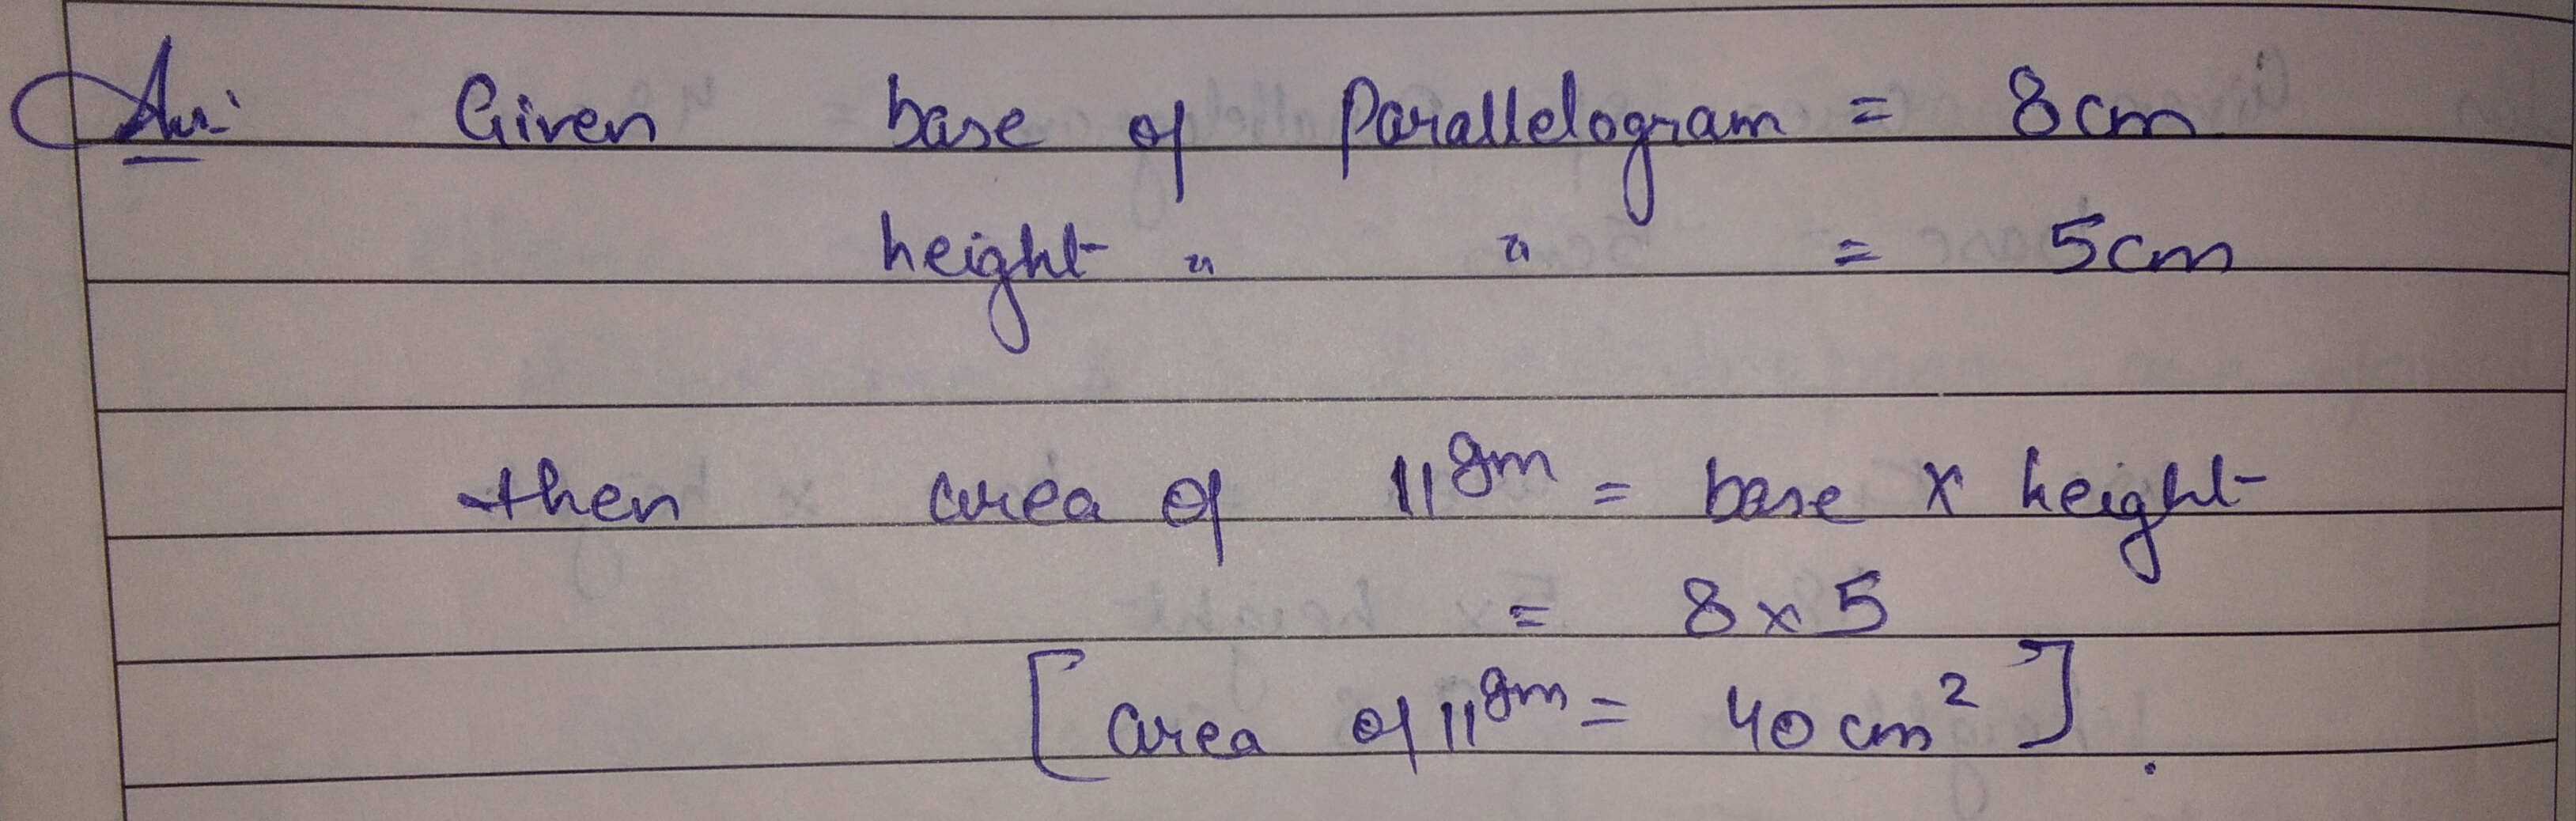 Ans: Given base of Parallelogram = 8cm
height " " = 5cm
then area of 11gm = base x height
= 8x5
[area of 11gm = 40 cm²].